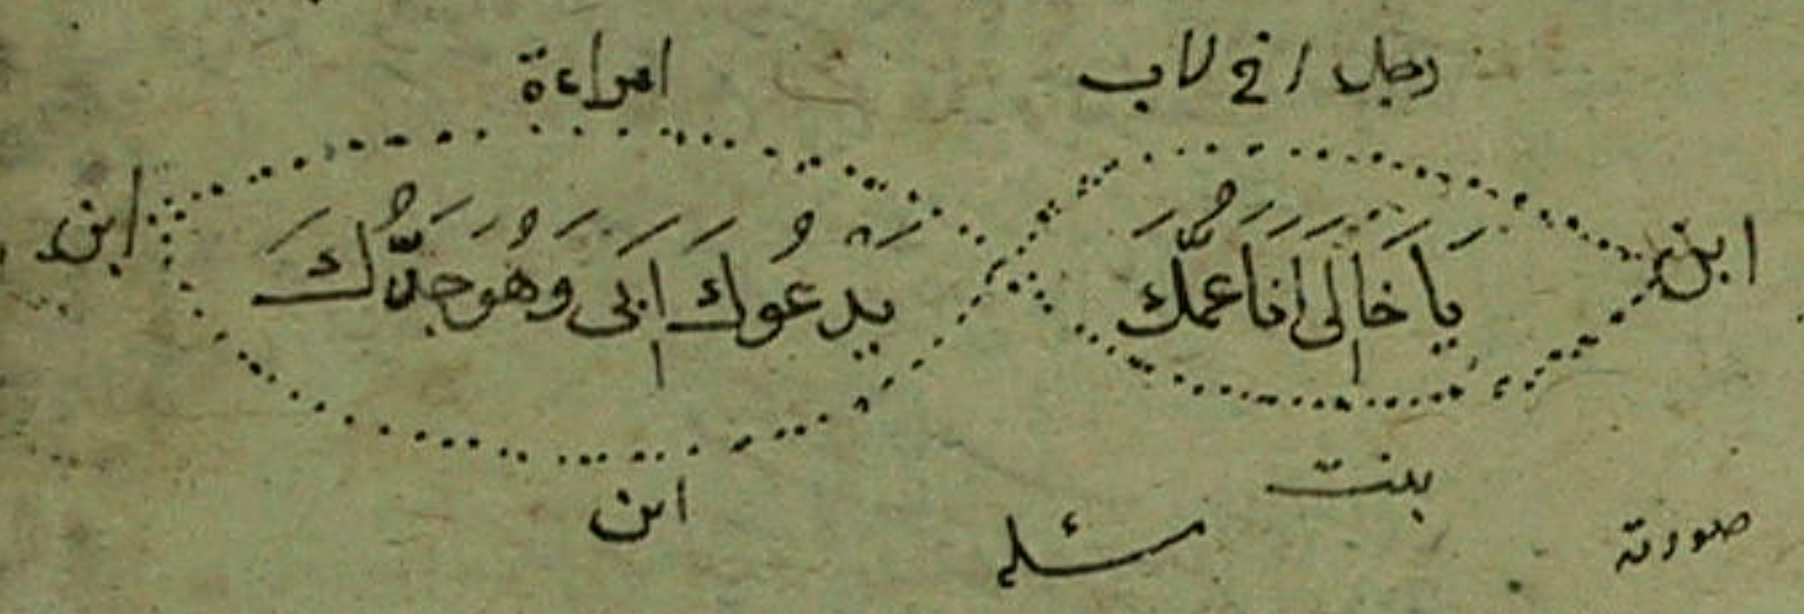 رجل اخ لاب
امراءة
ابن
يَا خَالِى اَنَا عَمُّكَ
يَدْعُوكَ اَبِى وَهُوَ جَدُّكَ
ابن
بنت
ابن
صورته
مسئله